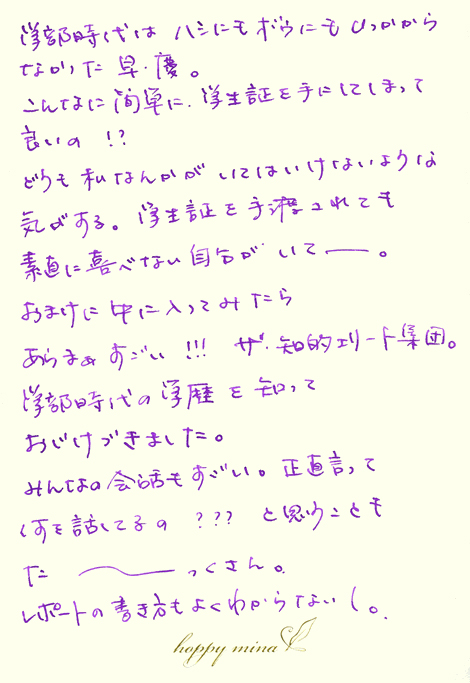 学部時代は ハシにもボウにもひっかから
なかった 早・慶。
こんなに簡単に、学生証を手にしてしまって
良いの !?
どうも 私なんかが いてはいけないような
気がする。学生証を手渡されても
素直に喜べない自分が いてー。
おまけに 中に入ってみたら
あらまぁ すごい !!! ザ・知的エリート集団。
学部時代の学歴を知って
おじけづきました。
みんなの会話もすごい。正直言って
何を話してるの ??? と思うことも
た〜っくさん。
レポートの書き方もよくわからないし。
happy mina